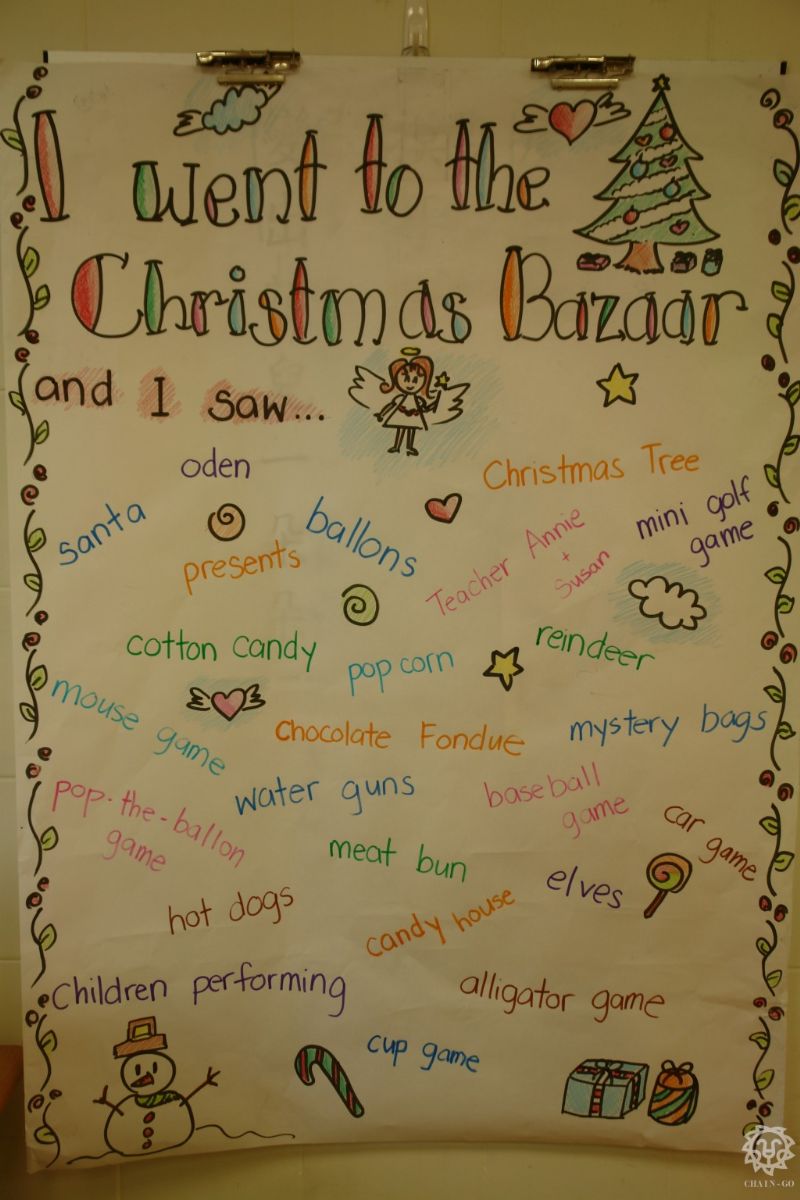 I went to the
Christmas Bazaar
and I saw...
oden
Christmas Tree
santa
ballons
mini golf
game
presents
Teacher Annie
+
Susan
cotton candy
pop corn
reindeer
mouse game
Chocolate Fondue
mystery bags
pop-the-ballon
game
water guns
baseball
game
car game
meat bun
elves
hot dogs
candy house
Children performing
alligator game
cup game
CHAIN-GO